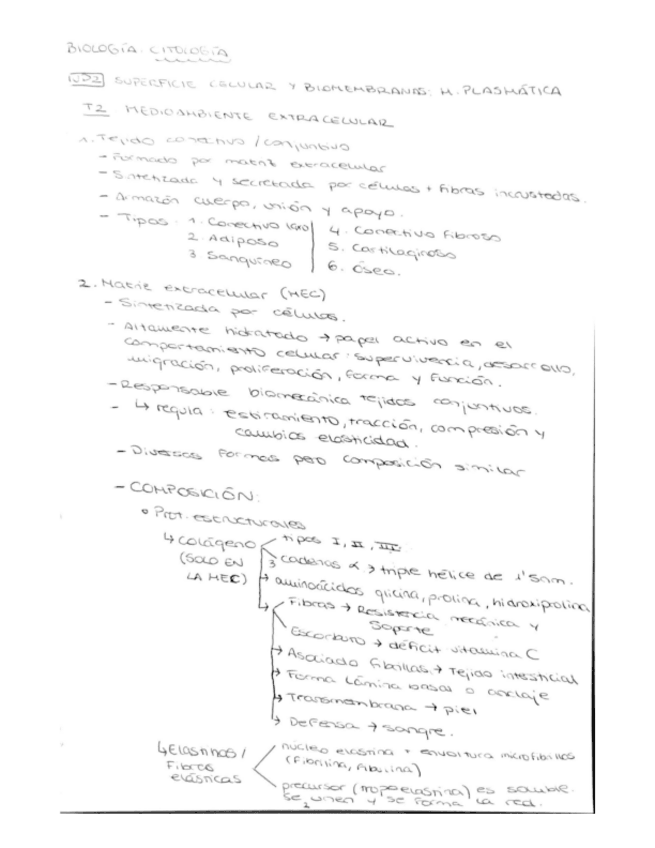 BIOLOGÍA. CITOLOGÍA
UD1 SUPERFICIE CELULAR Y BIOMEMBRANAS: M. PLASMÁTICA
T2 MEDIOAMBIENTE EXTRACELULAR
1. Tejido conectivo / conjuntivo
- Formado por matriz extracelular
- Sintetizada y secretada por células + fibras incrustadas.
- Armazón cuerpo, unión y apoyo.
- Tipos: 1. Conectivo laxo 4. Conectivo Fibroso
2. Adiposo 5. Cartilaginoso
3 Sanguíneo 6. Óseo.
2. Matriz extracelular (MEC)
- Sintetizada por células.
- Altamente hidratado → papel activo en el
comportamiento celular: supervivencia, desarrollo,
migración, proliferación, forma y función.
- Responsable biomecánica tejidos conjuntivos.
- ↳ regula: estiramiento, tracción, compresión y
cambios elasticidad.
- Diversas formas pero composición similar
- COMPOSICIÓN:
• Prot. estructurales
↳ Colágeno tipos I, II, III
(SOLO EN LA MEC) 3 cadenas α → triple hélice de 1'5nm.
→ aminoácidos glicina, prolina, hidroxiprolina
↳ Fibras → Resistencia mecánica y
soporte
Escorbuto → déficit vitamina C
→ Asociado fibrillas → Tejido intersticial
→ Forma Lámina basal o anclaje
→ Transmembrana → piel
→ Defensa → sangre.
↳ Elastinas / Fibras elásticas núcleo elastina + envoltura microfibrillas
(Fibrilina, Fibulina)
precursor (tropoelastina) es soluble.
se unen y se forma la red.